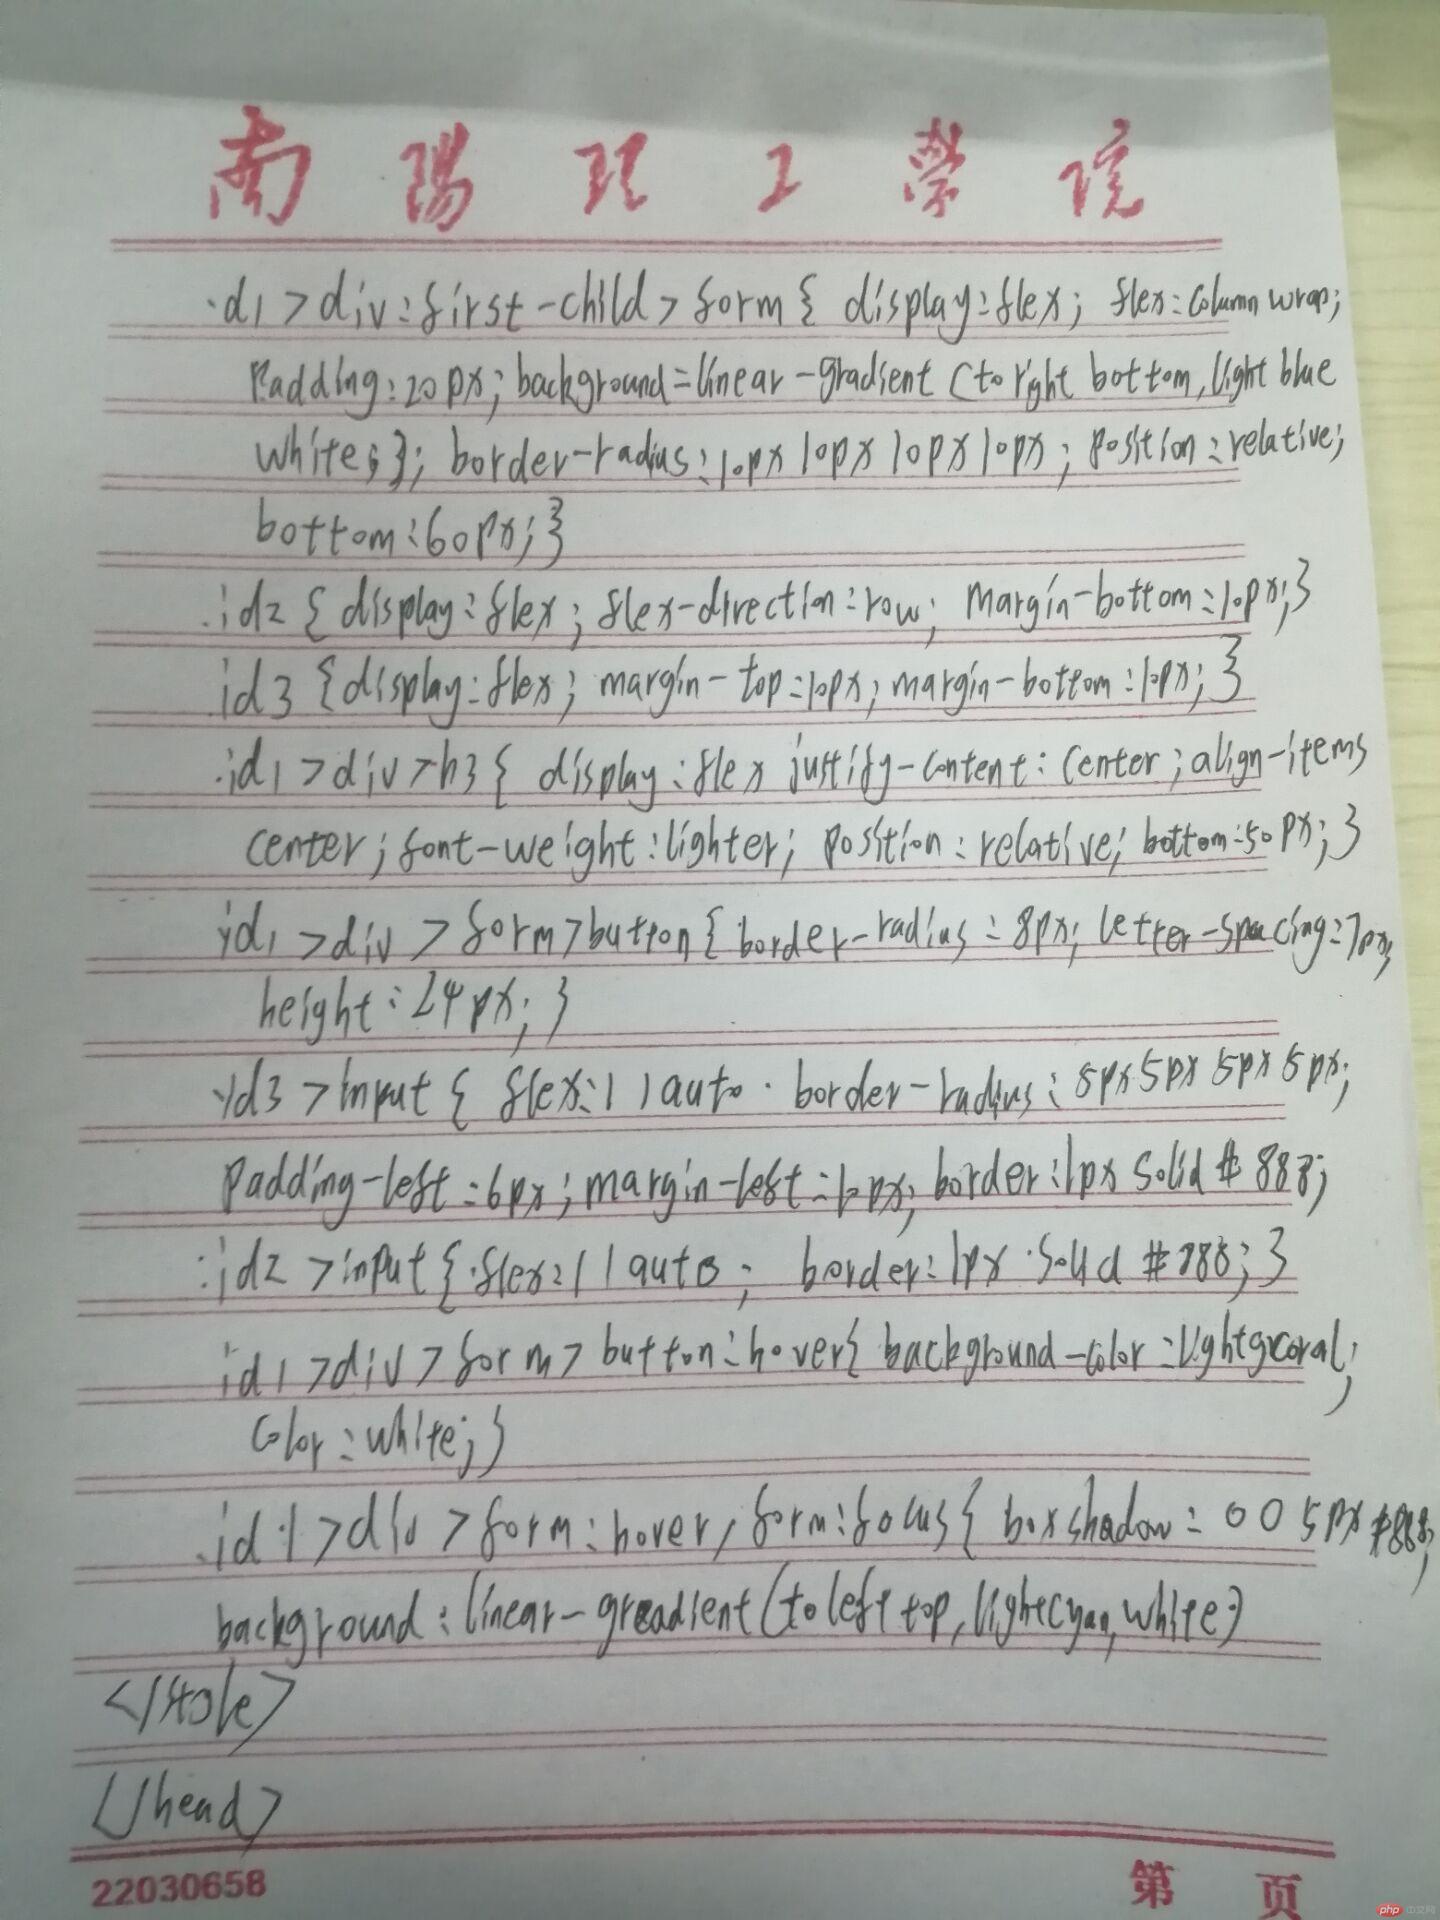 南陽理工學院
.d1>div:first-child>form{ display:flex; flex:column wrap;
Padding:20px; background:linear-gradient(to right bottom, light blue
white; }; border-radius:10px 10px 10px 10px; position:relative;
bottom:60px;}
.id2{display:flex; flex-direction:row; margin-bottom:10px;}
.id3{display:flex; margin-top:10px; margin-bottom:10px; }
.id1>div>h3{ display:flex justify-content:center; align-items
center; font-weight:lighter; position:relative; bottom:50px;}
.id1>div>form>button{border-radius:8px; letter-spacing:70px;
height:24px; }
.id3>input{ flex:1 1 auto. border-radius:5px 5px 5px 5px;
padding-left:6px; margin-left:10px; border:1px solid #888;
.id2>input{.flex:1 1 auto; border:1px solid #888; }
.id1>div>form>button:hover{ background-color:lightgcoral;
color:white; }
.id1>div>form:hover, form:focus{ boxshadow:0 0 5px #888;
background:linear-greadient(to left top, lightcyan, white;)
</style>
</head>
22030658 第 页
php 中文网